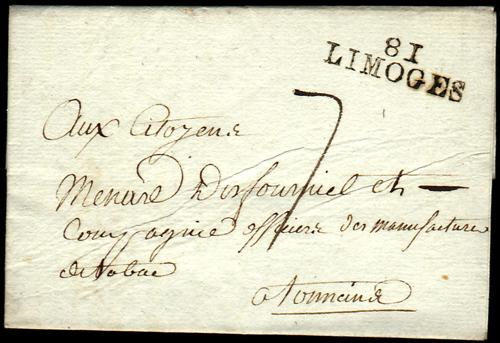 81
LIMOGES
7
Aux Citoyens
Menard et
Compagnie des manufacture
de tabac
a tonneins